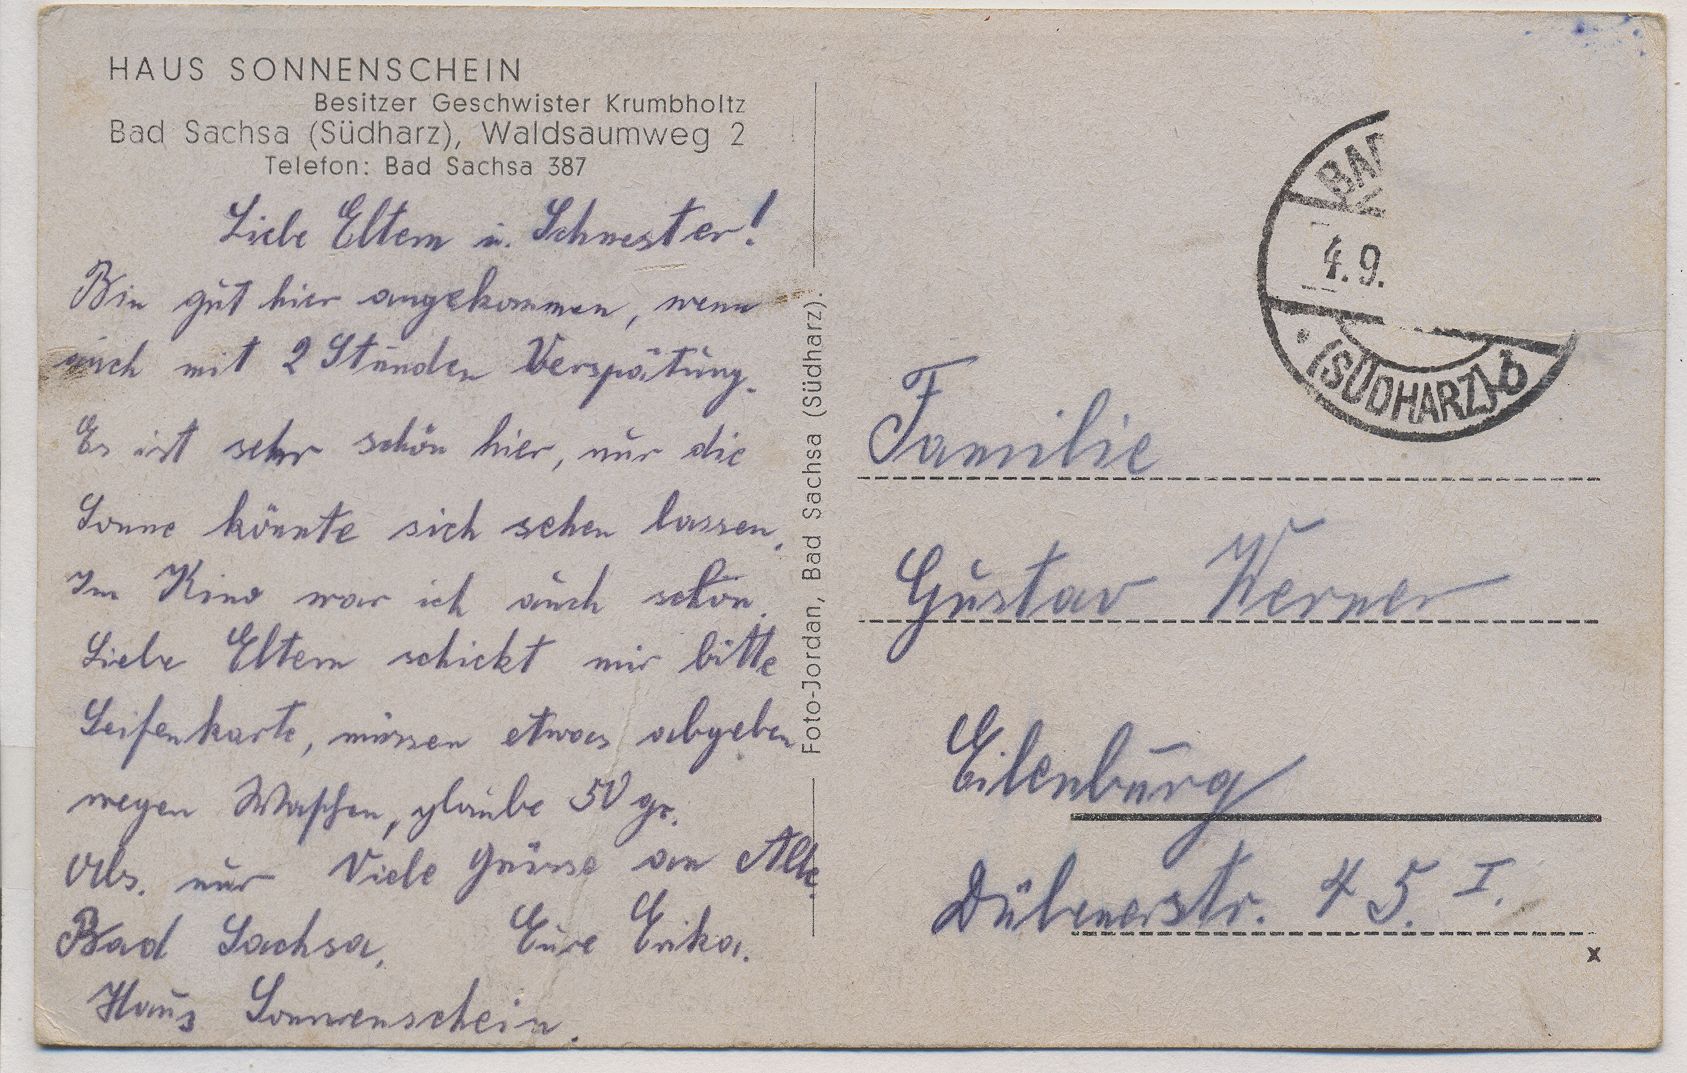 HAUS SONNENSCHEIN
Besitzer Geschwister Krumbholtz
Bad Sachsa (Südharz), Waldsaumweg 2
Telefon: Bad Sachsa 387
Liebe Eltern u. Schwester!
Bin gut hier angekommen, wenn
auch mit 2 Stunden Verspätung.
Es ist sehr schön hier, nur die
Sonne könnte sich sehen lassen.
Im Kino war ich auch schon.
Liebe Eltern schickt mir bitte
Seifenkarte, müssen etwas abgeben
wegen Waschen, glaube 50 gr.
Abs. nur Viele Grüsse an Alle.
Bad Sachsa, Eure Erika.
Haus Sonnenschein.
Foto-Jordan, Bad Sachsa (Südharz).
BAD
4.9.
(SÜDHARZ) b
Familie
Gustav Werner
Eilenburg
Dübenerstr. 45. I.
x